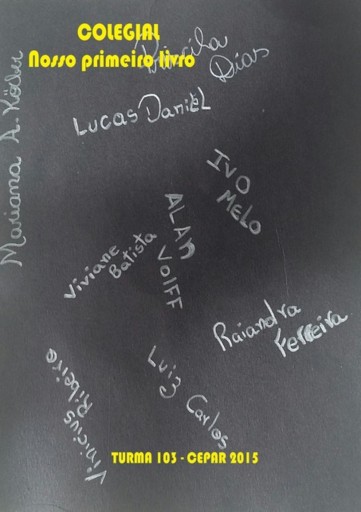 COLEGIAL
Nosso primeiro livro
Priscila
Dias
Lucas Daniel
Mariana A. Köder
IVO
MELO
ALAN
VOIFF
Viviane
Batista
Raiandra
Ferreira
Luiz Carlos
Vinicius Ribeiro
TURMA 103 - CEPAR 2015